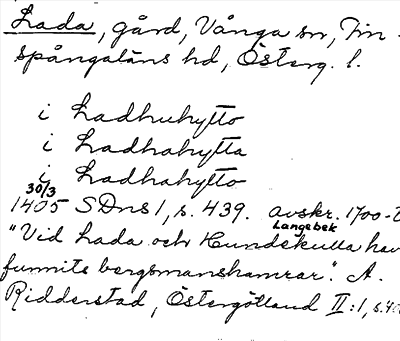 Lada, gård, Vånga sn, Fin-
spångaläns hd, Österg. l.
i Ladhuhytto
i Ladhahytta
i Ladhahytto
30/3
1405 SDns 1, s. 439. avskr. 1700-t
Langebek
"Vid Lada och Hundskulla hav
funnits bergsmanshamrar." A.
Ridderstad, Östergötland II:1, s.